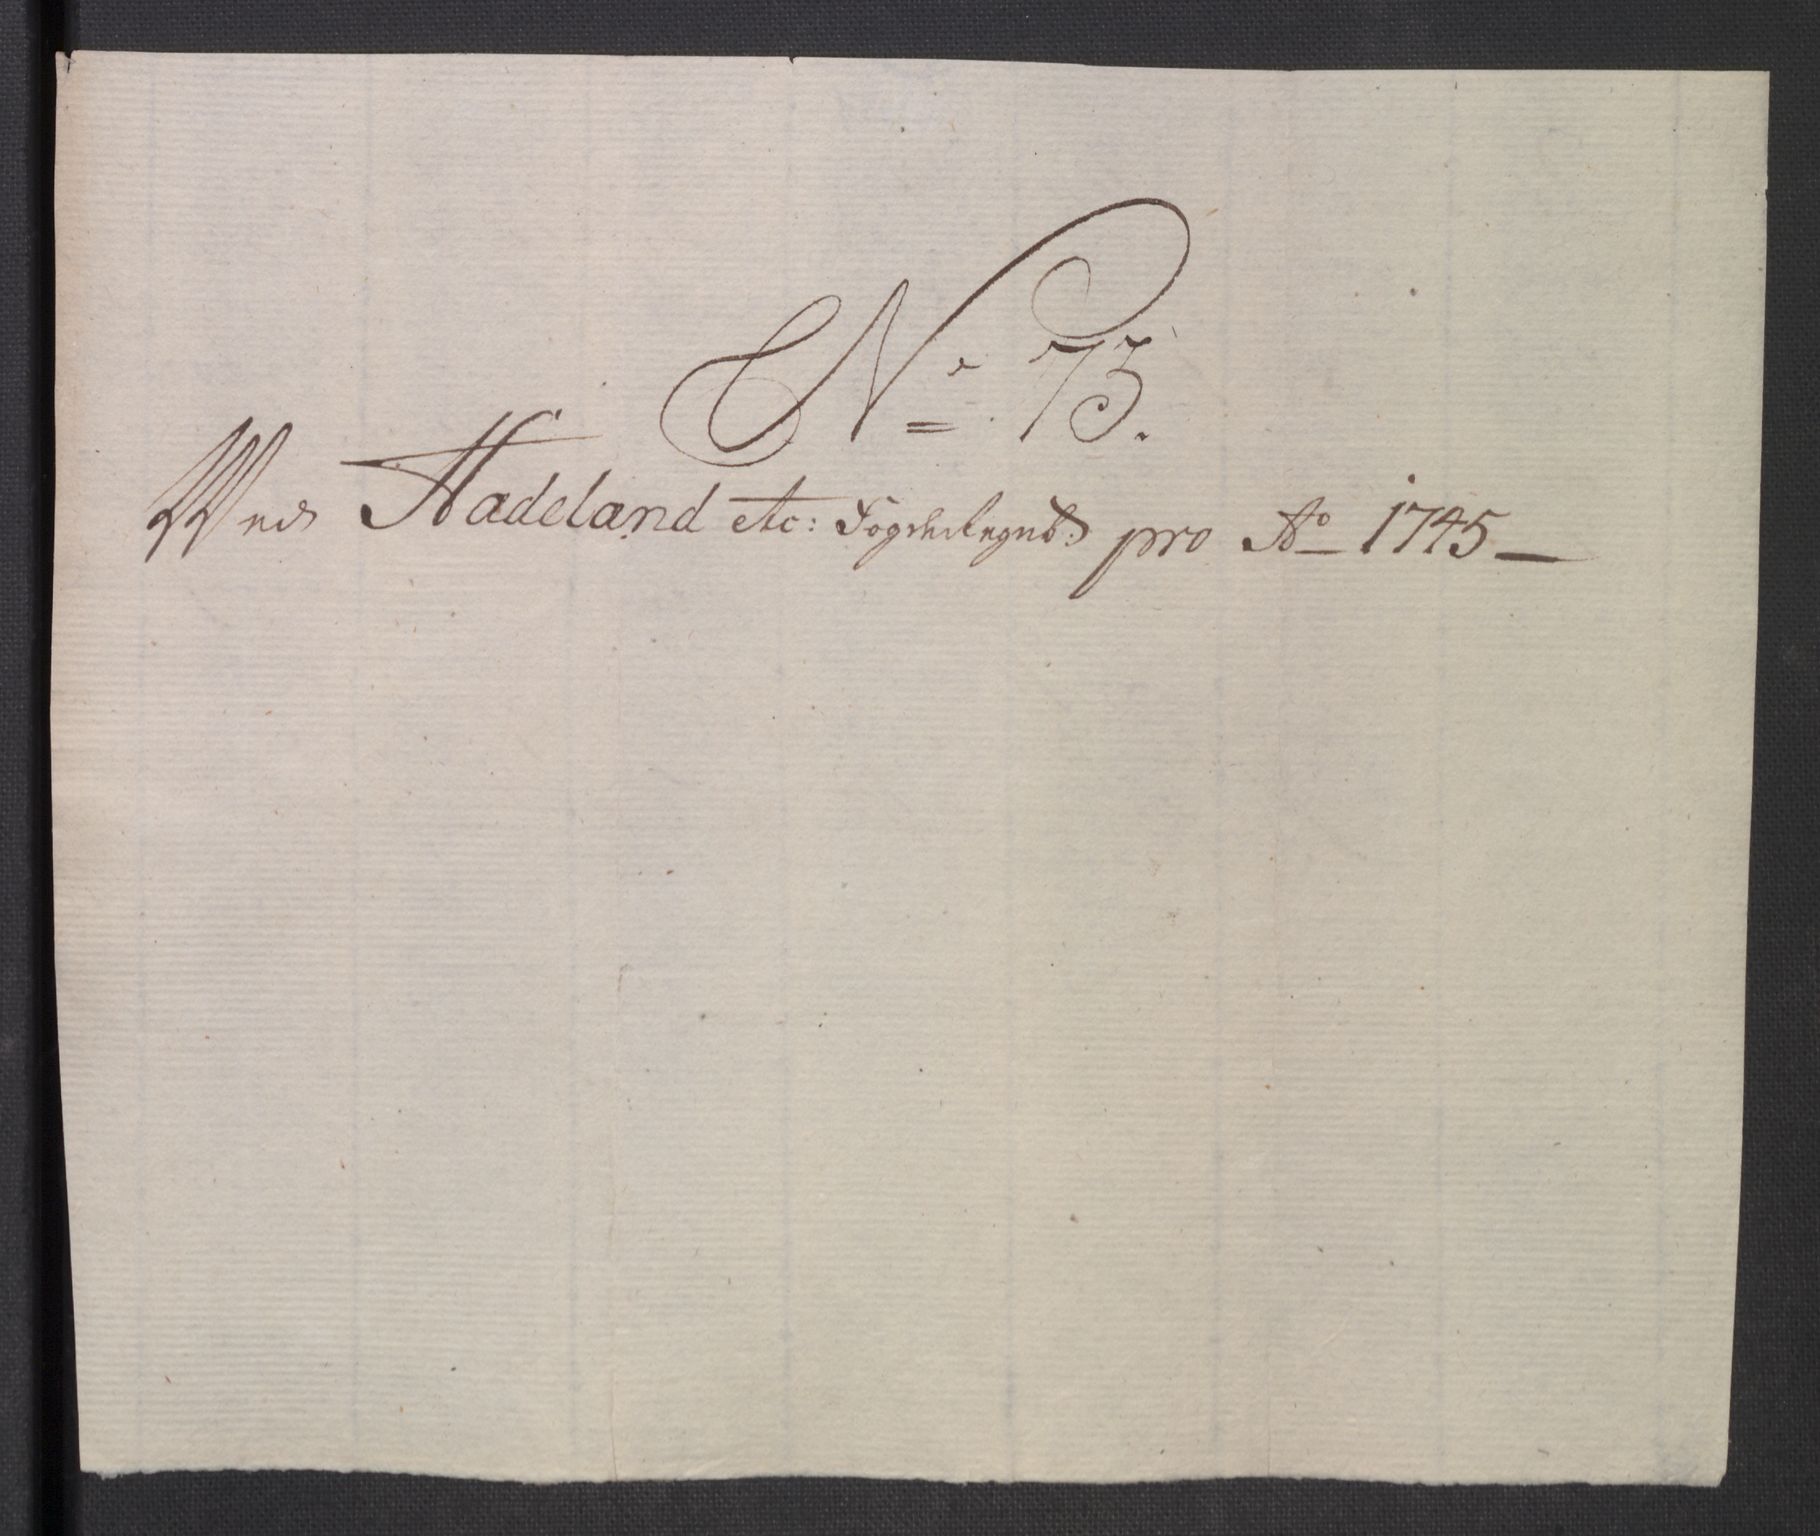 No 73.
Wed Hadeland etc: Fogderiegnsk: pro Ao 1745